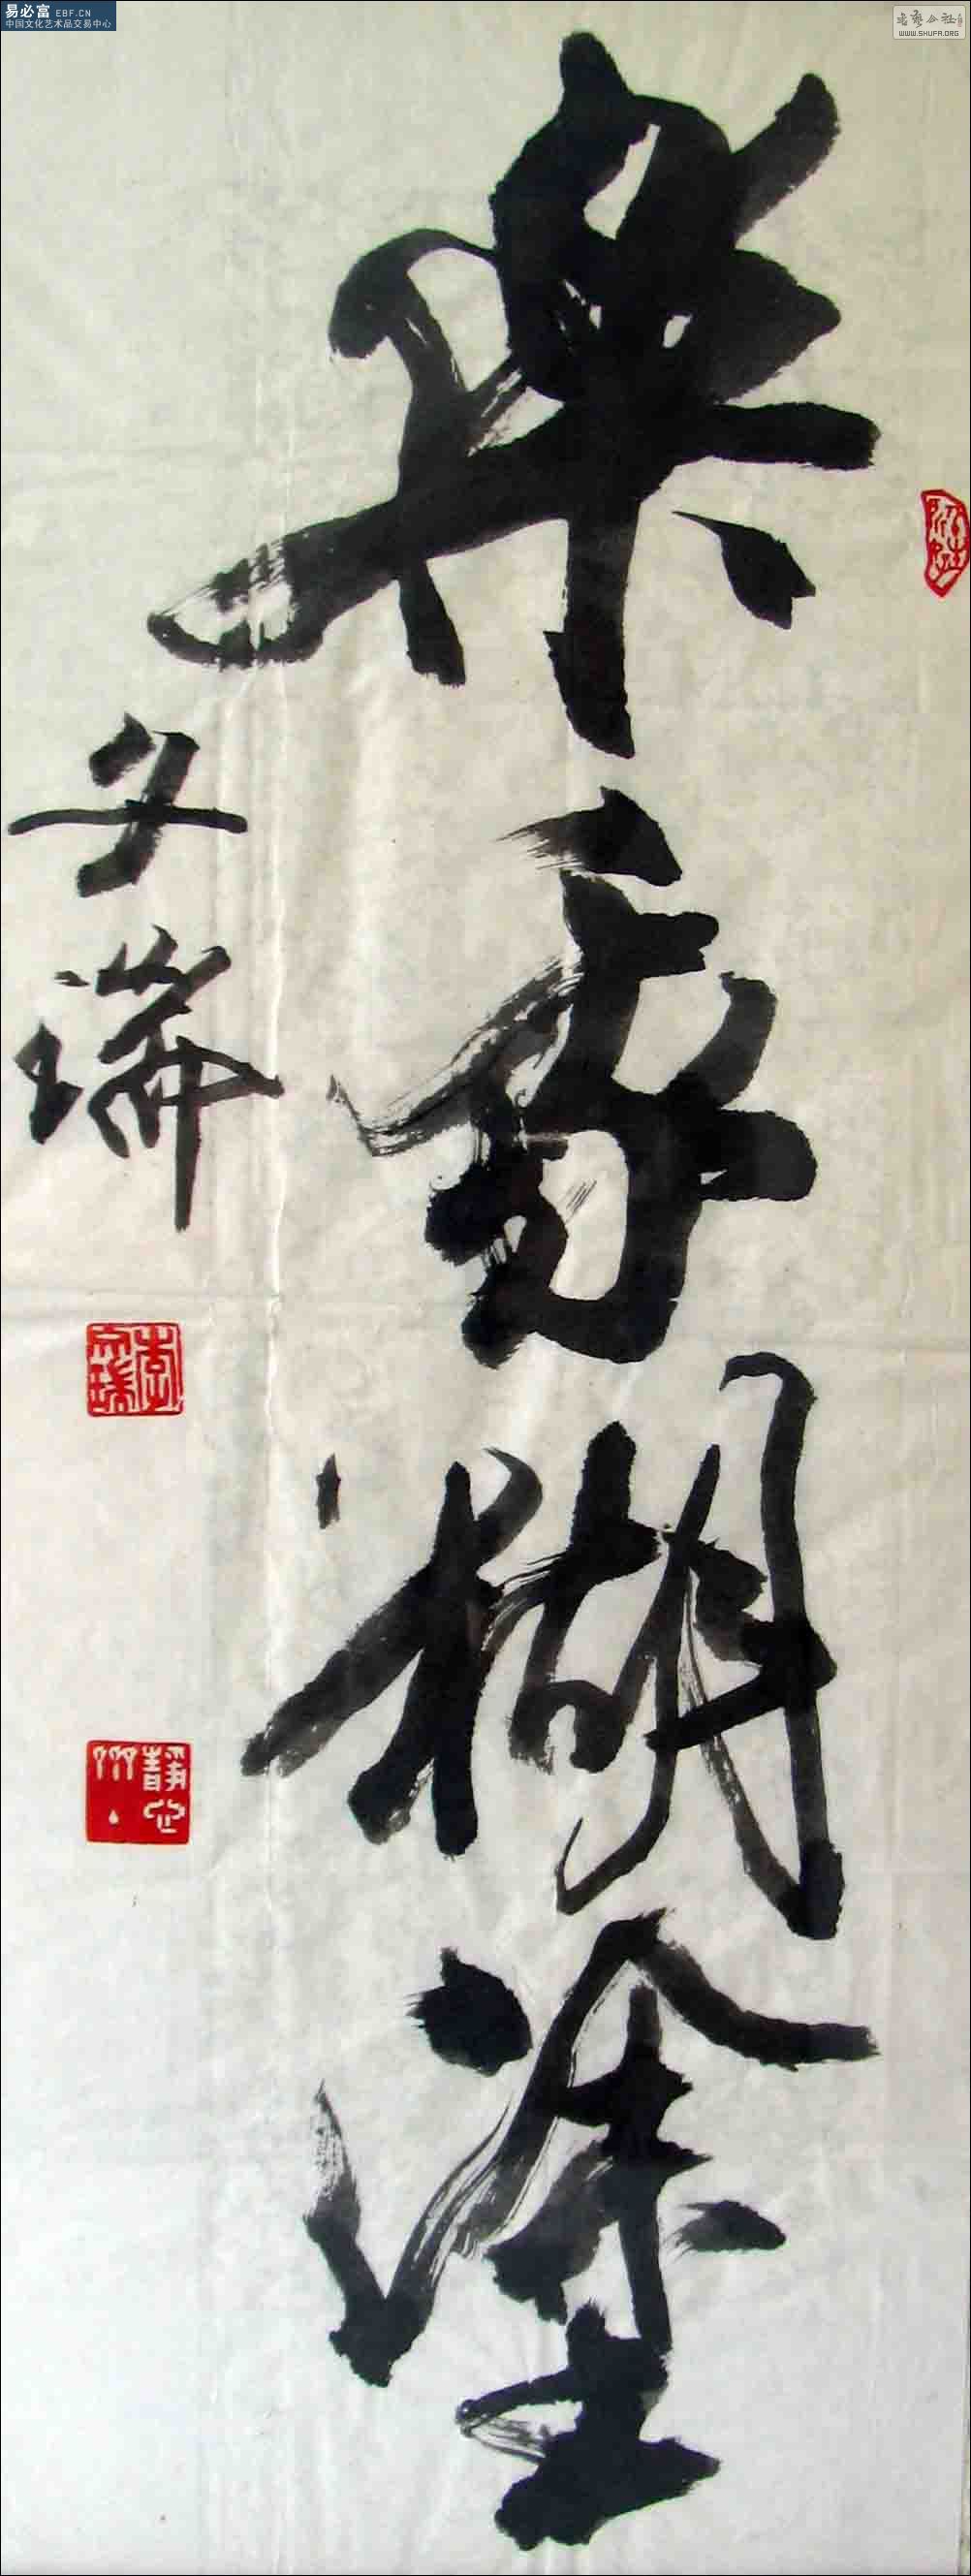 易必富 EBF.CN
中国文化艺术品交易中心
书艺公社
WWW.SHUFA.ORG
樂糊塗
文瑞
李文瑞